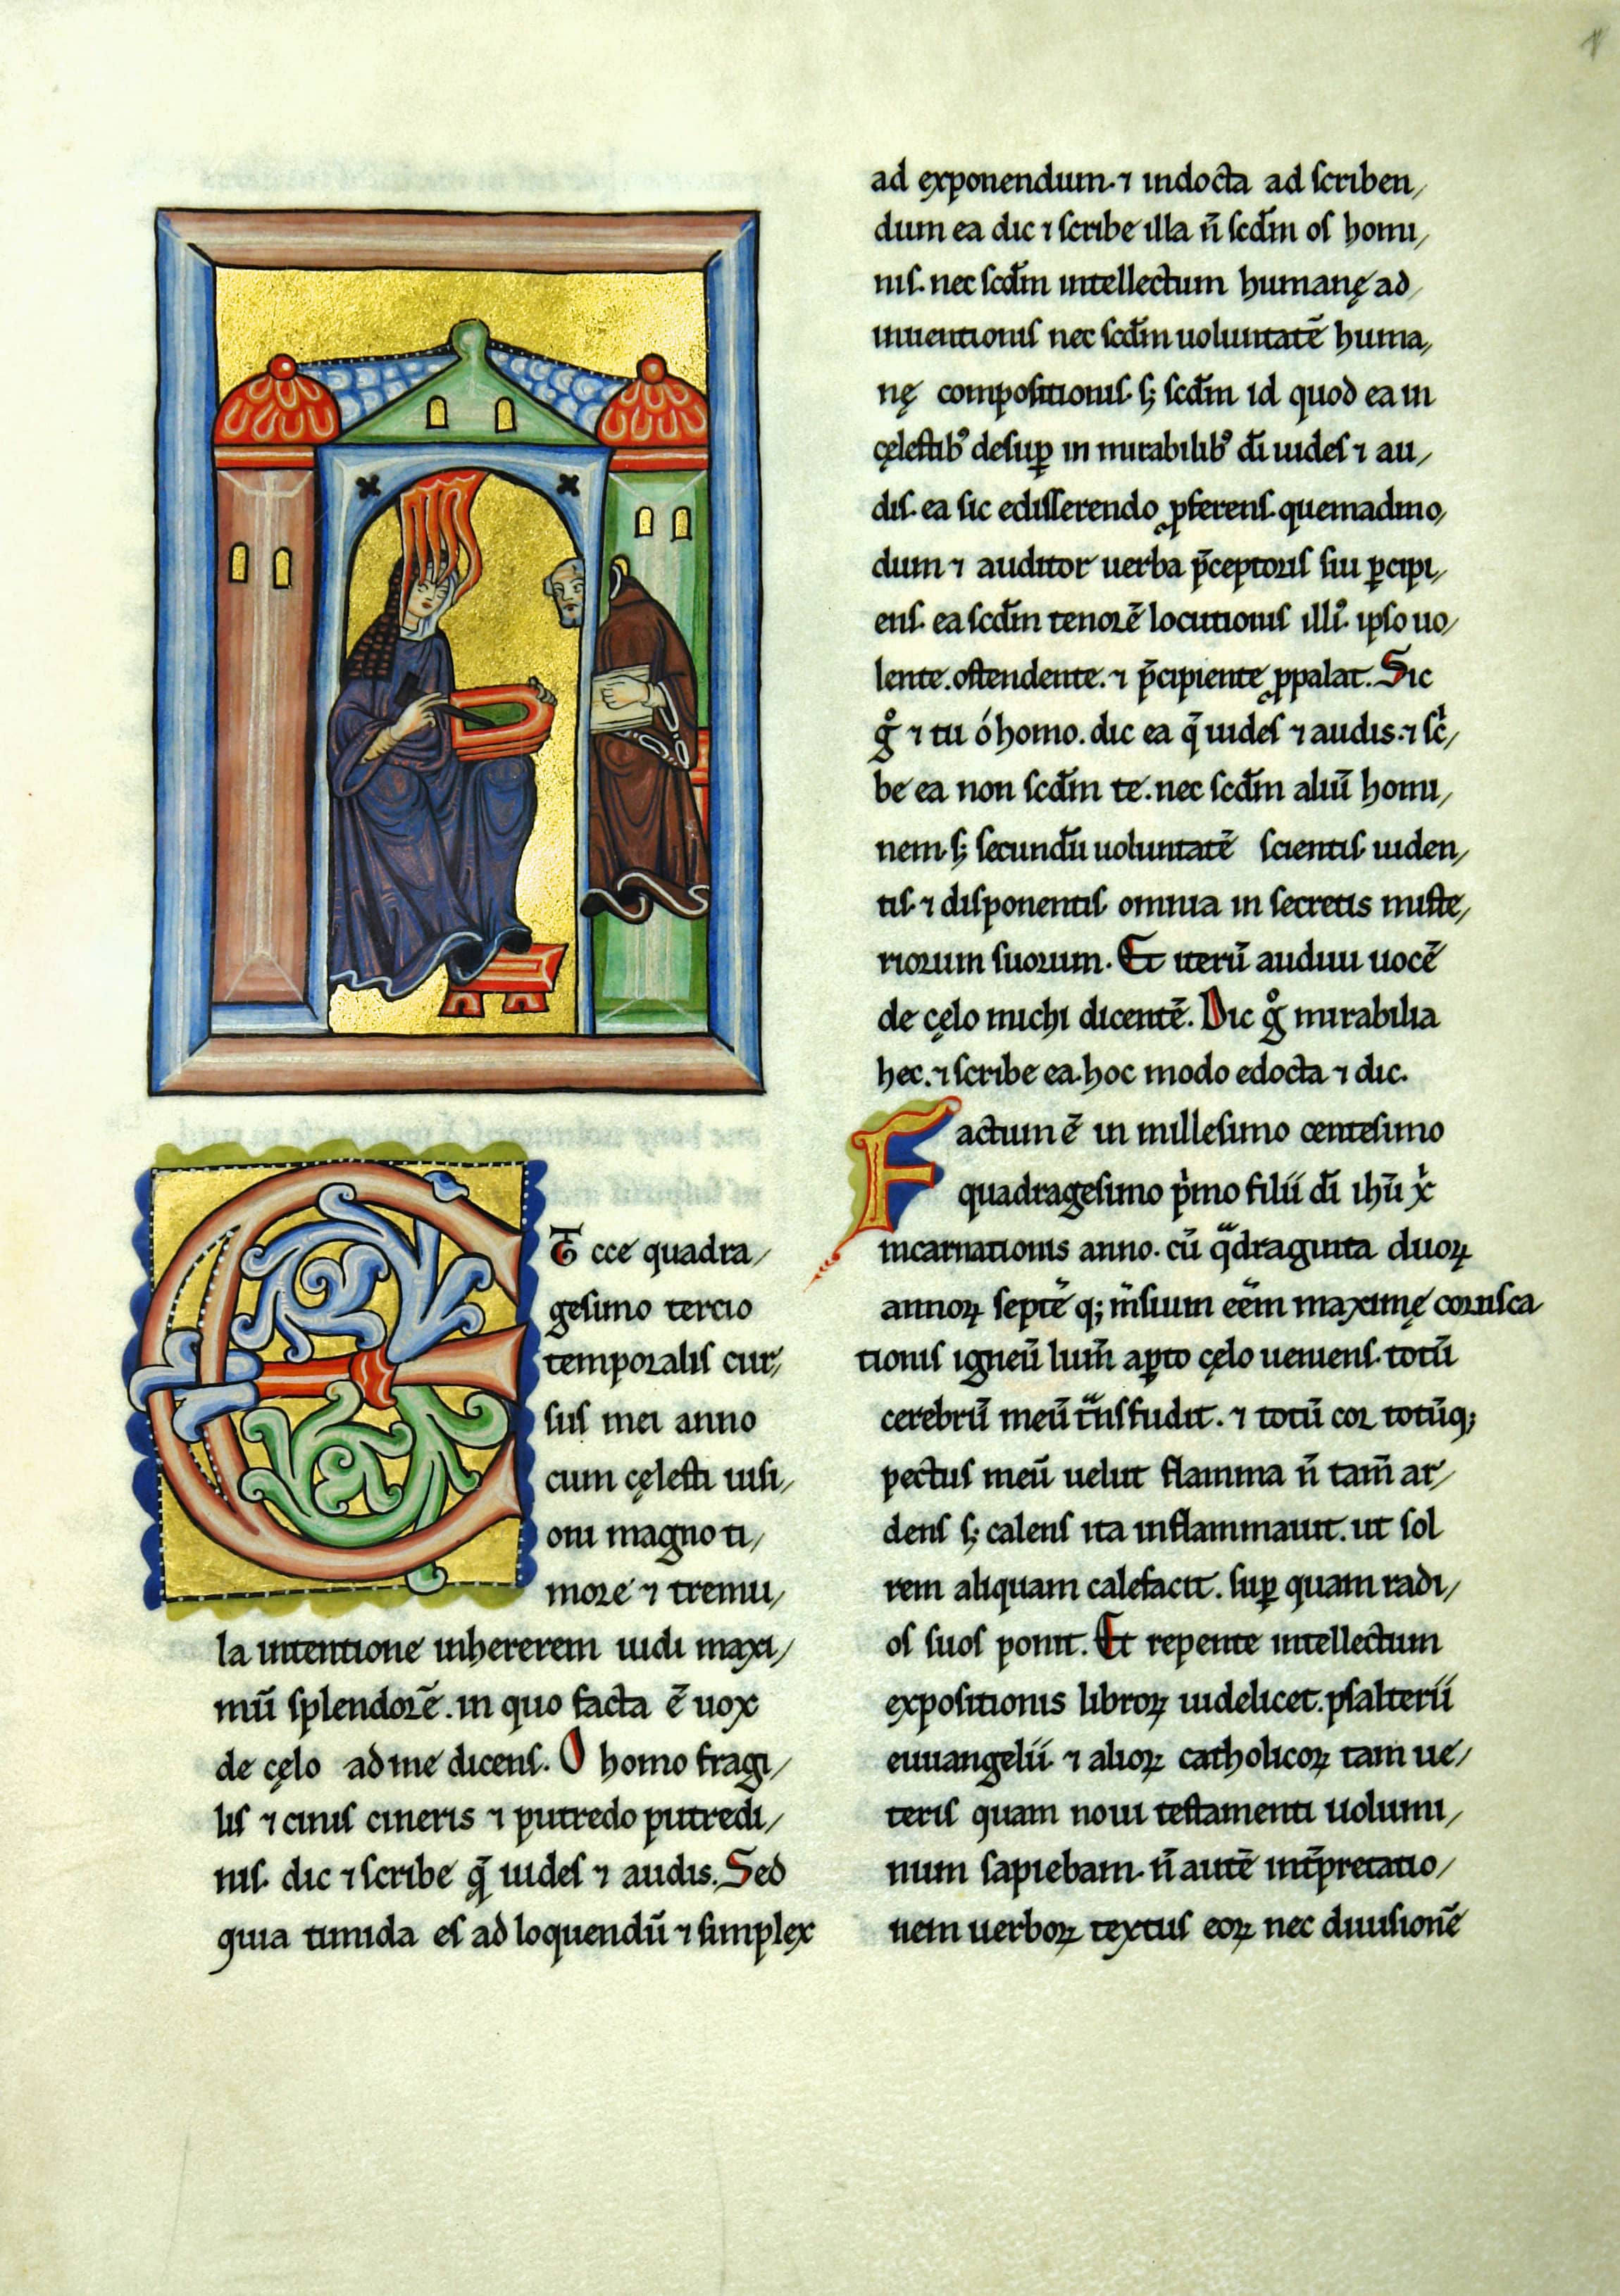 Et ecce quadra/
gesimo tercio
temporalis cur/
sus mei anno
cum cęlesti uisi/
oni magno ti/
more ⁊ tremu/
la intentione inhererem uidi maxi/
mū splendorē. in quo facta ē uox
de cęlo ad me dicens. O homo fragi/
lis ⁊ cinis cineris ⁊ putredo putredi/
nis. dic ⁊ scribe q̄ uides ⁊ audis. Sed
quia timida es ad loquendū ⁊ simplex
ad exponendum. ⁊ indocta ad scriben/
dum ea dic ⁊ scribe illa n̄ scd̄m os homi/
nis. nec scd̄m intellectum humanę ad/
inuentionis nec scd̄m uoluntatē huma/
nę compositionis. s; scd̄m id quod ea in
cęlestib⁹ desuꝑ in mirabilib⁹ dī uides ⁊ au/
dis. ea sic edisserendo ꝓferens. quemadmo/
dum ⁊ auditor uerba p̄ceptoris sui ꝑcipi/
ens. ea scd̄m tenorē locutionis illi⁹. ipso uo/
lente. ostendente. ⁊ p̄cipiente ꝓpalat. Sic
gͦ ⁊ tu ó homo. dic ea q̄ uides ⁊ audis. ⁊ scͥ/
be ea non scd̄m te. nec scd̄m aliū homi/
nem. s; secundū uoluntatē scientis uiden/
tis ⁊ disponentis omnia in secretis miste/
riorum suorum. Et iterū audiui uocē
de cęlo michi dicentē. Dic gͦ mirabilia
hec. ⁊ scribe ea. hoc modo edocta ⁊ dic.
Factum ē in millesimo centesimo
quadragesimo pͥmo filii dī ihū xͥ
incarnationis anno. cū qͣdraginta duoꝝ
annoꝝ septē q; m̄sium eēm maximę corusca
tionis igneū lum̄ aꝑto cęlo ueniens. totū
cerebrū meū tͣnsfudit. ⁊ totū cor totūq;
pectus meū uelut flamma n̄ tam̄ ar/
dens s; calens ita inflammauit. ut sol
rem aliquam calefacit. suꝑ quam radi/
os suos ponit. Et repente intellectum
expositionis libroꝝ uidelicet. psalterii
euuangelii ⁊ alioꝝ catholicoꝝ tam ue/
teris quam noui testamenti uolumi/
num sapiebam. n̄ autē int̄pretatio/
nem uerboꝝ textus eoꝝ nec diuisionē